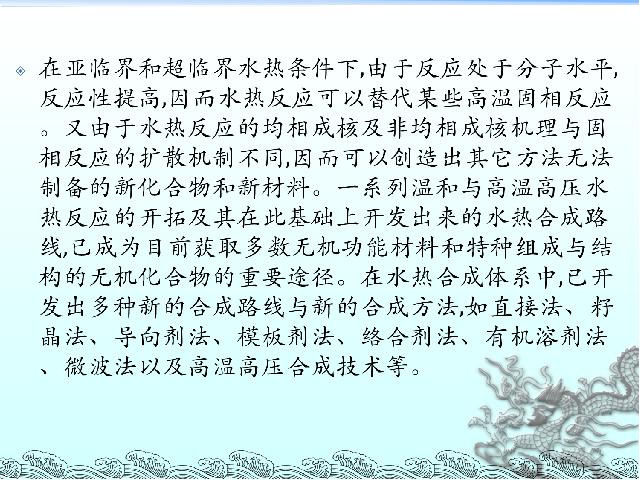 在亚临界和超临界水热条件下,由于反应处于分子水平,
反应性提高,因而水热反应可以替代某些高温固相反应
。又由于水热反应的均相成核及非均相成核机理与固
相反应的扩散机制不同,因而可以创造出其它方法无法
制备的新化合物和新材料。一系列温和与高温高压水
热反应的开拓及其在此基础上开发出来的水热合成路
线,已成为目前获取多数无机功能材料和特种组成与结
构的无机化合物的重要途径。在水热合成体系中,已开
发出多种新的合成路线与新的合成方法,如直接法、籽
晶法、导向剂法、模板剂法、络合剂法、有机溶剂法
、微波法以及高温高压合成技术等。